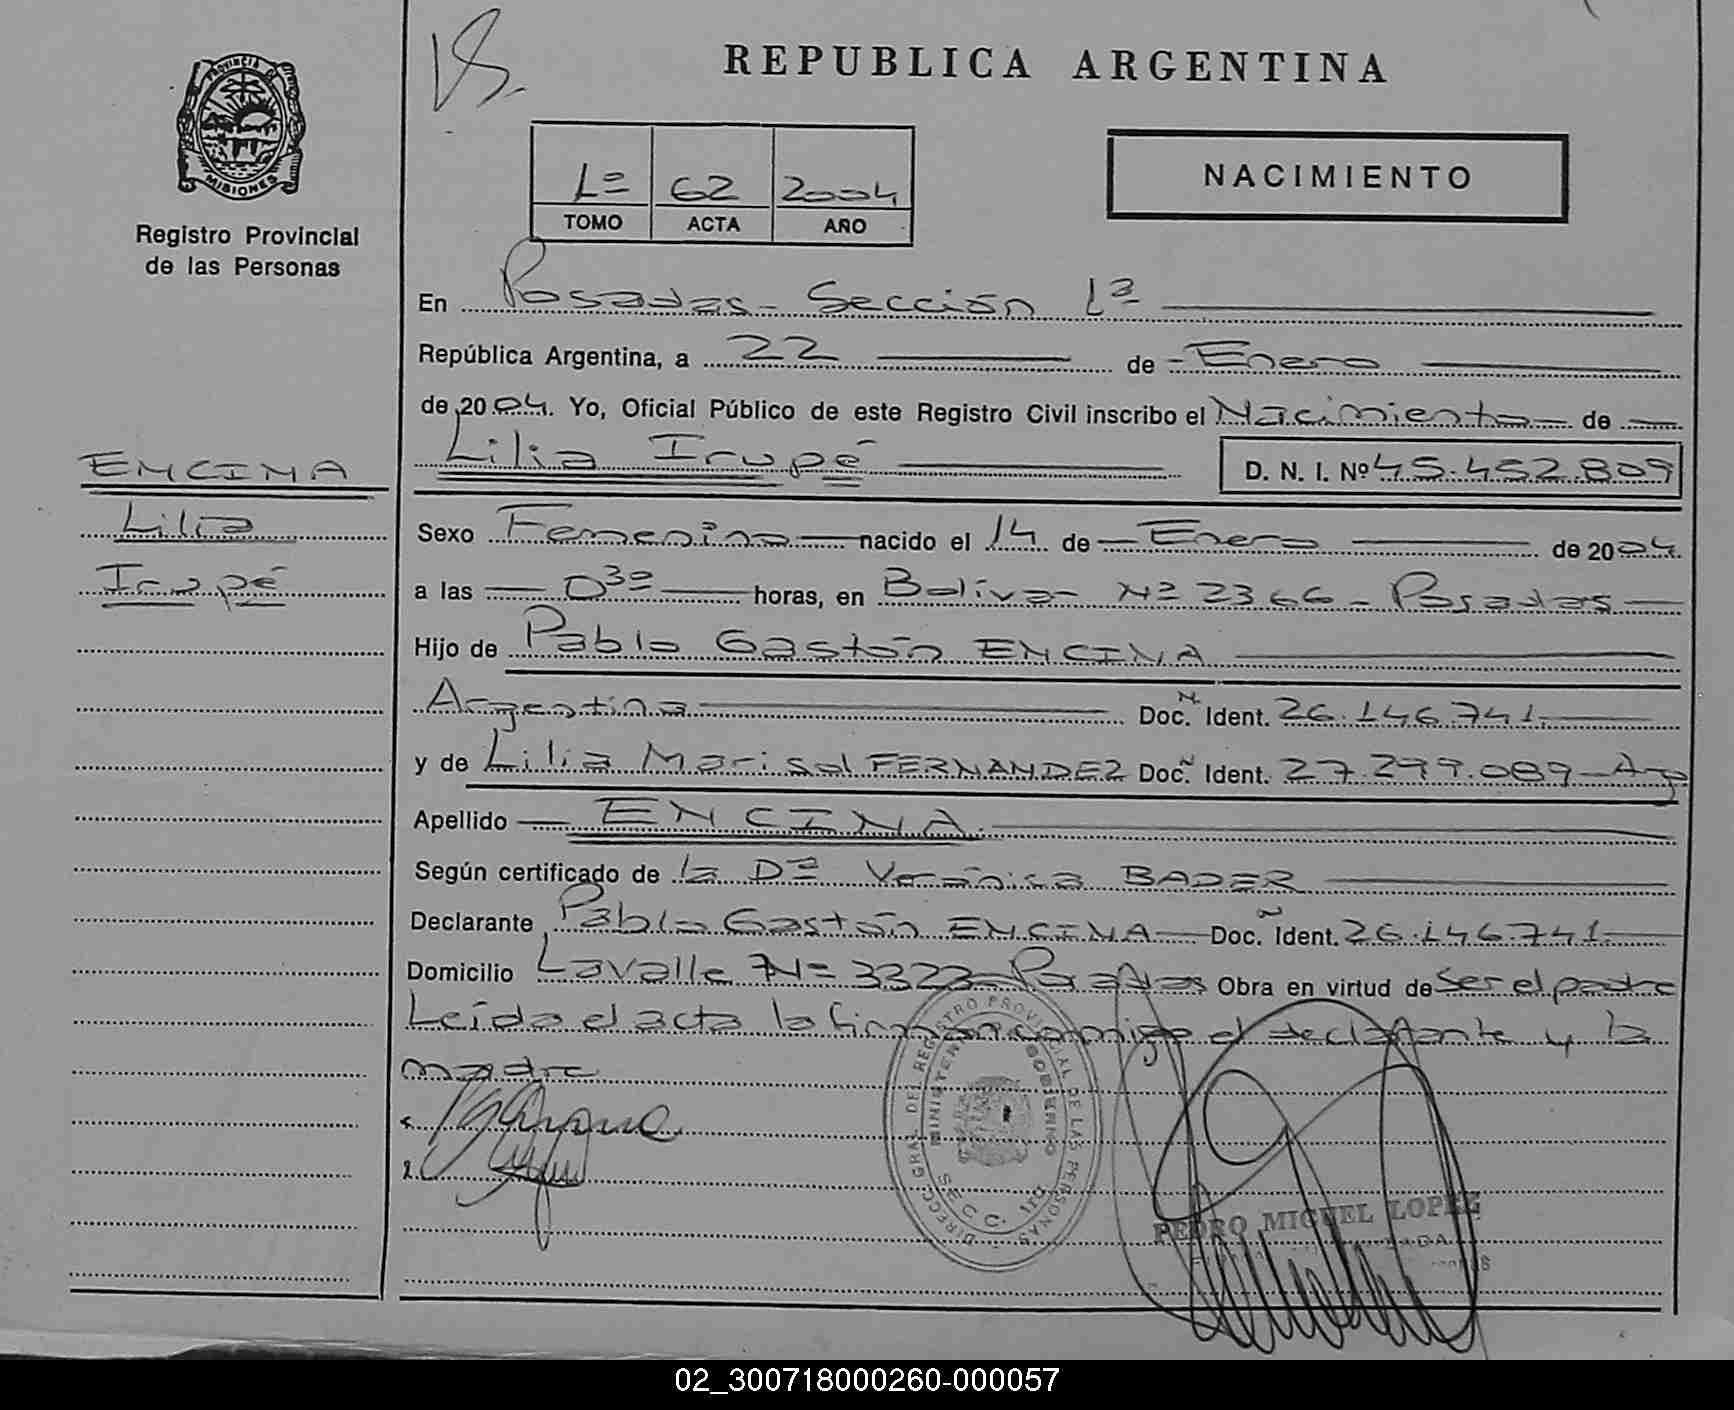 REPUBLICA ARGENTINA
PROVINCIA DE
MISIONES
Registro Provincial
de las Personas
1º 62 2004
TOMO ACTA AÑO
NACIMIENTO
En Posadas - Sección 1ª
República Argentina, a 22 de Enero
de 2004. Yo, Oficial Público de este Registro Civil inscribo el Nacimiento de
Lilia Irupé D. N. I. Nº 45.452.809
ENCINA
Lilia
Irupé
Sexo Femenino nacido el 14 de Enero de 2004
a las 0³⁰ horas, en Bolívar Nº 2366 - Posadas
Hijo de Pablo Gastón ENCINA
Argentina Doc. Ñ. Ident. 26.146.741.
y de Lilia Marisol FERNANDEZ Doc. Ñ Ident. 27.299.089 - Arg
Apellido ENCINA
Según certificado de la Dª Verónica BADER
Declarante Pablo Gastón ENCINA Doc. Ident. 26.146.741.
Domicilio Lavalle Nº 3323 - Posadas Obra en virtud de ser el padre
Leída el acta la firman conmigo el declarante y la
madre
2.
DIRECC. GRAL. DEL REGISTRO PROVINCIAL DE LAS PERSONAS
MINISTERIO GOBIERNO
SECC. 1ra
PEDRO MIGUEL LOPEZ
02_300718000260-000057